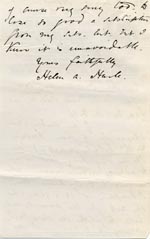 of course very sorry too. to
lose so good a subscription
from my list. but I
know it is unavoidable.
Yours faithfully
Helen A.